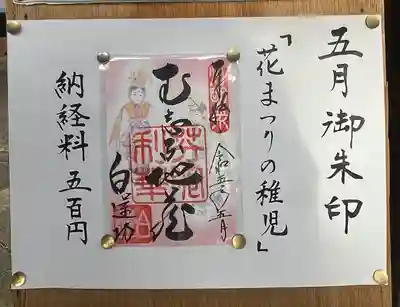 五月御朱印
「花まつりの稚児」
令和五年五月
白蓮坊
納経料 五百円